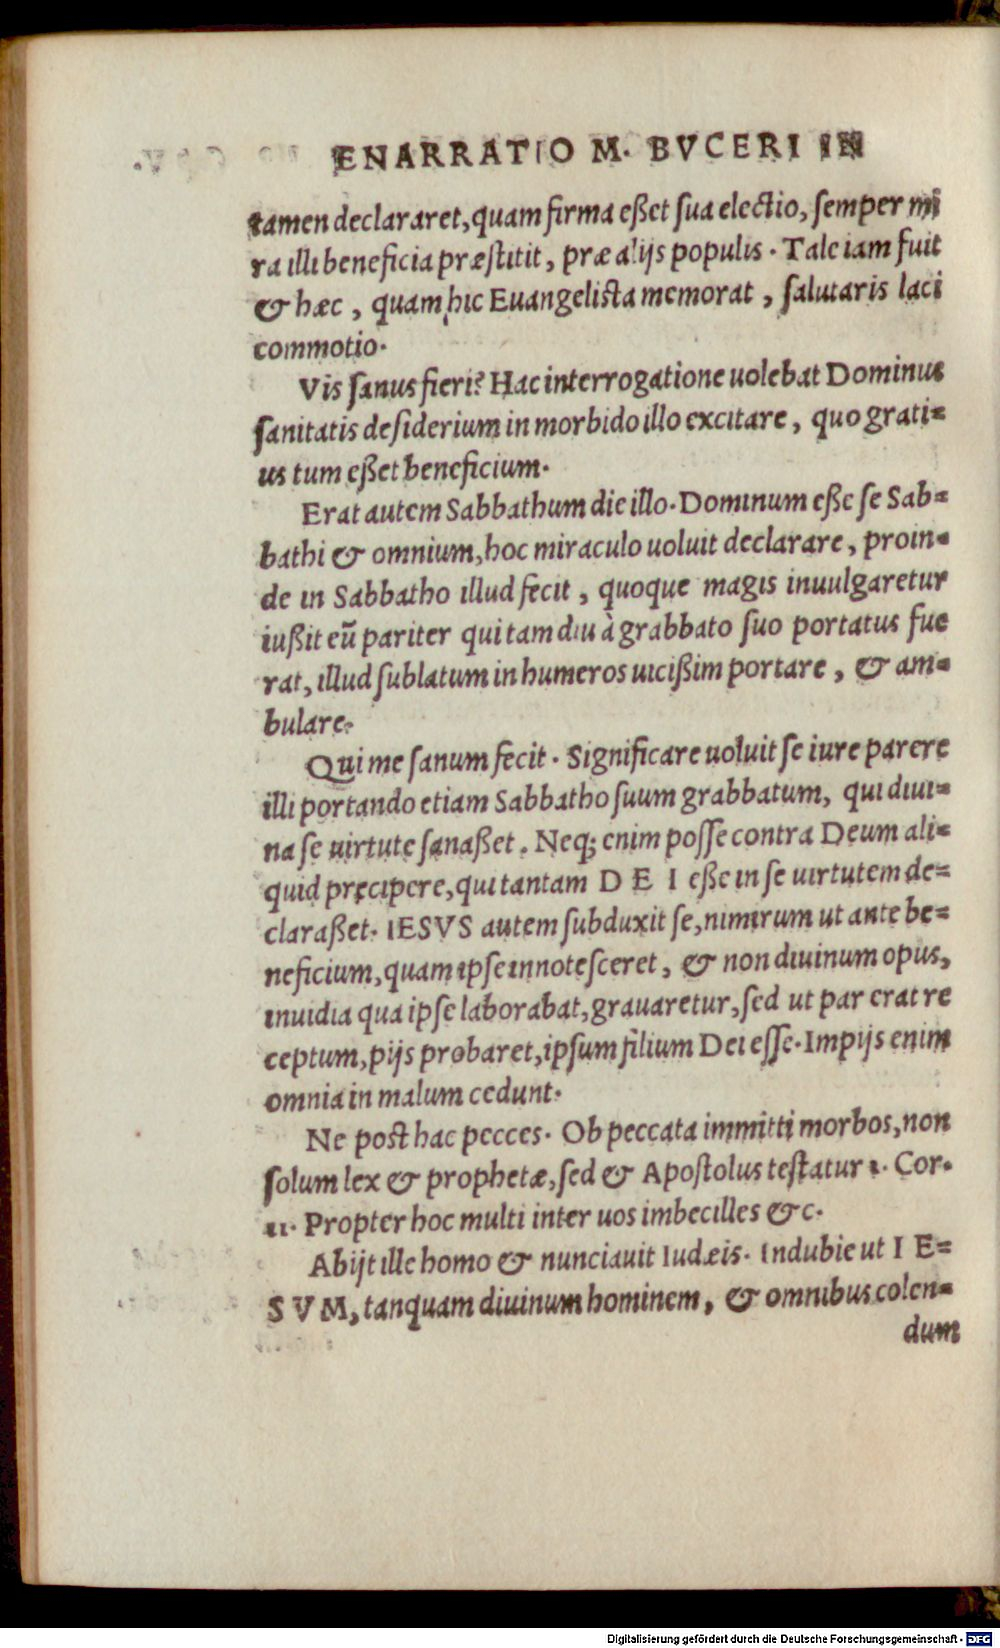 ENARRATIO M. BVCERI IN
tamen declararet, quam firma eßet ſua electio, ſemper mi
ra illi beneficia præſtitit, præ alijs populis. Tale iam fuit
& hæc, quam hic Euangeliſta memorat, ſalutaris laci
commotio.
Vis ſanus fieri? Hac interrogatione uolebat Dominus
ſanitatis deſiderium in morbido illo excitare, quo grati=
us tum eßet beneficium.
Erat autem Sabbathum die illo. Dominum eße ſe Sab=
bathi & omnium, hoc miraculo uoluit declarare, proin=
de in Sabbatho illud fecit, quoque magis inuulgaretur
iußit eũ pariter qui tam diu à grabbato ſuo portatus fue
rat, illud ſublatum in humeros uicißim portare, & am=
bulare.
Qui me ſanum fecit. Significare uoluit ſe iure parere
illi portando etiam Sabbatho ſuum grabbatum, qui diui=
na ſe uirtute ſanaßet. Neq; enim poſſe contra Deum ali=
quid pręcipere, qui tantam D E I eße in ſe uirtutem de=
claraßet. IESVS autem ſubduxit ſe, nimirum ut ante be=
neficium, quam ipſe innoteſceret, & non diuinum opus,
inuidia qua ipſe laborabat, grauaretur, ſed ut par erat re
ceptum, pijs probaret, ipſum filium Dei eſſe. Impijs enim
omnia in malum cedunt.
Ne poſt hac pecces. Ob peccata immitti morbos, non
ſolum lex & prophetæ, ſed & Apoſtolus teſtatur 1. Cor.
11. Propter hoc multi inter uos imbecilles &c.
Abijt ille homo & nunciauit Iudæis. Indubie ut I E=
S V M, tanquam diuinum hominem, & omnibus colen=
dum
Digitalisierung gefördert durch die Deutsche Forschungsgemeinschaft - DFG